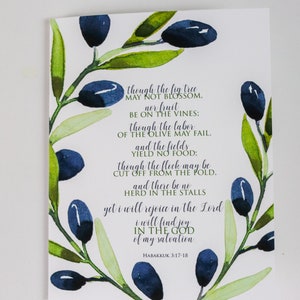 though the fig tree
MAY NOT BLOSSOM,
nor fruit
BE ON THE VINES;
though the labor
OF THE OLIVE MAY FAIL,
and the fields
YIELD NO FOOD;
though the flock may be
CUT OFF FROM THE FOLD,
and there be no
HERD IN THE STALLS
yet i will rejoice in the Lord
i will find joy
IN THE GOD
of my salvation
HABAKKUK 3:17-18